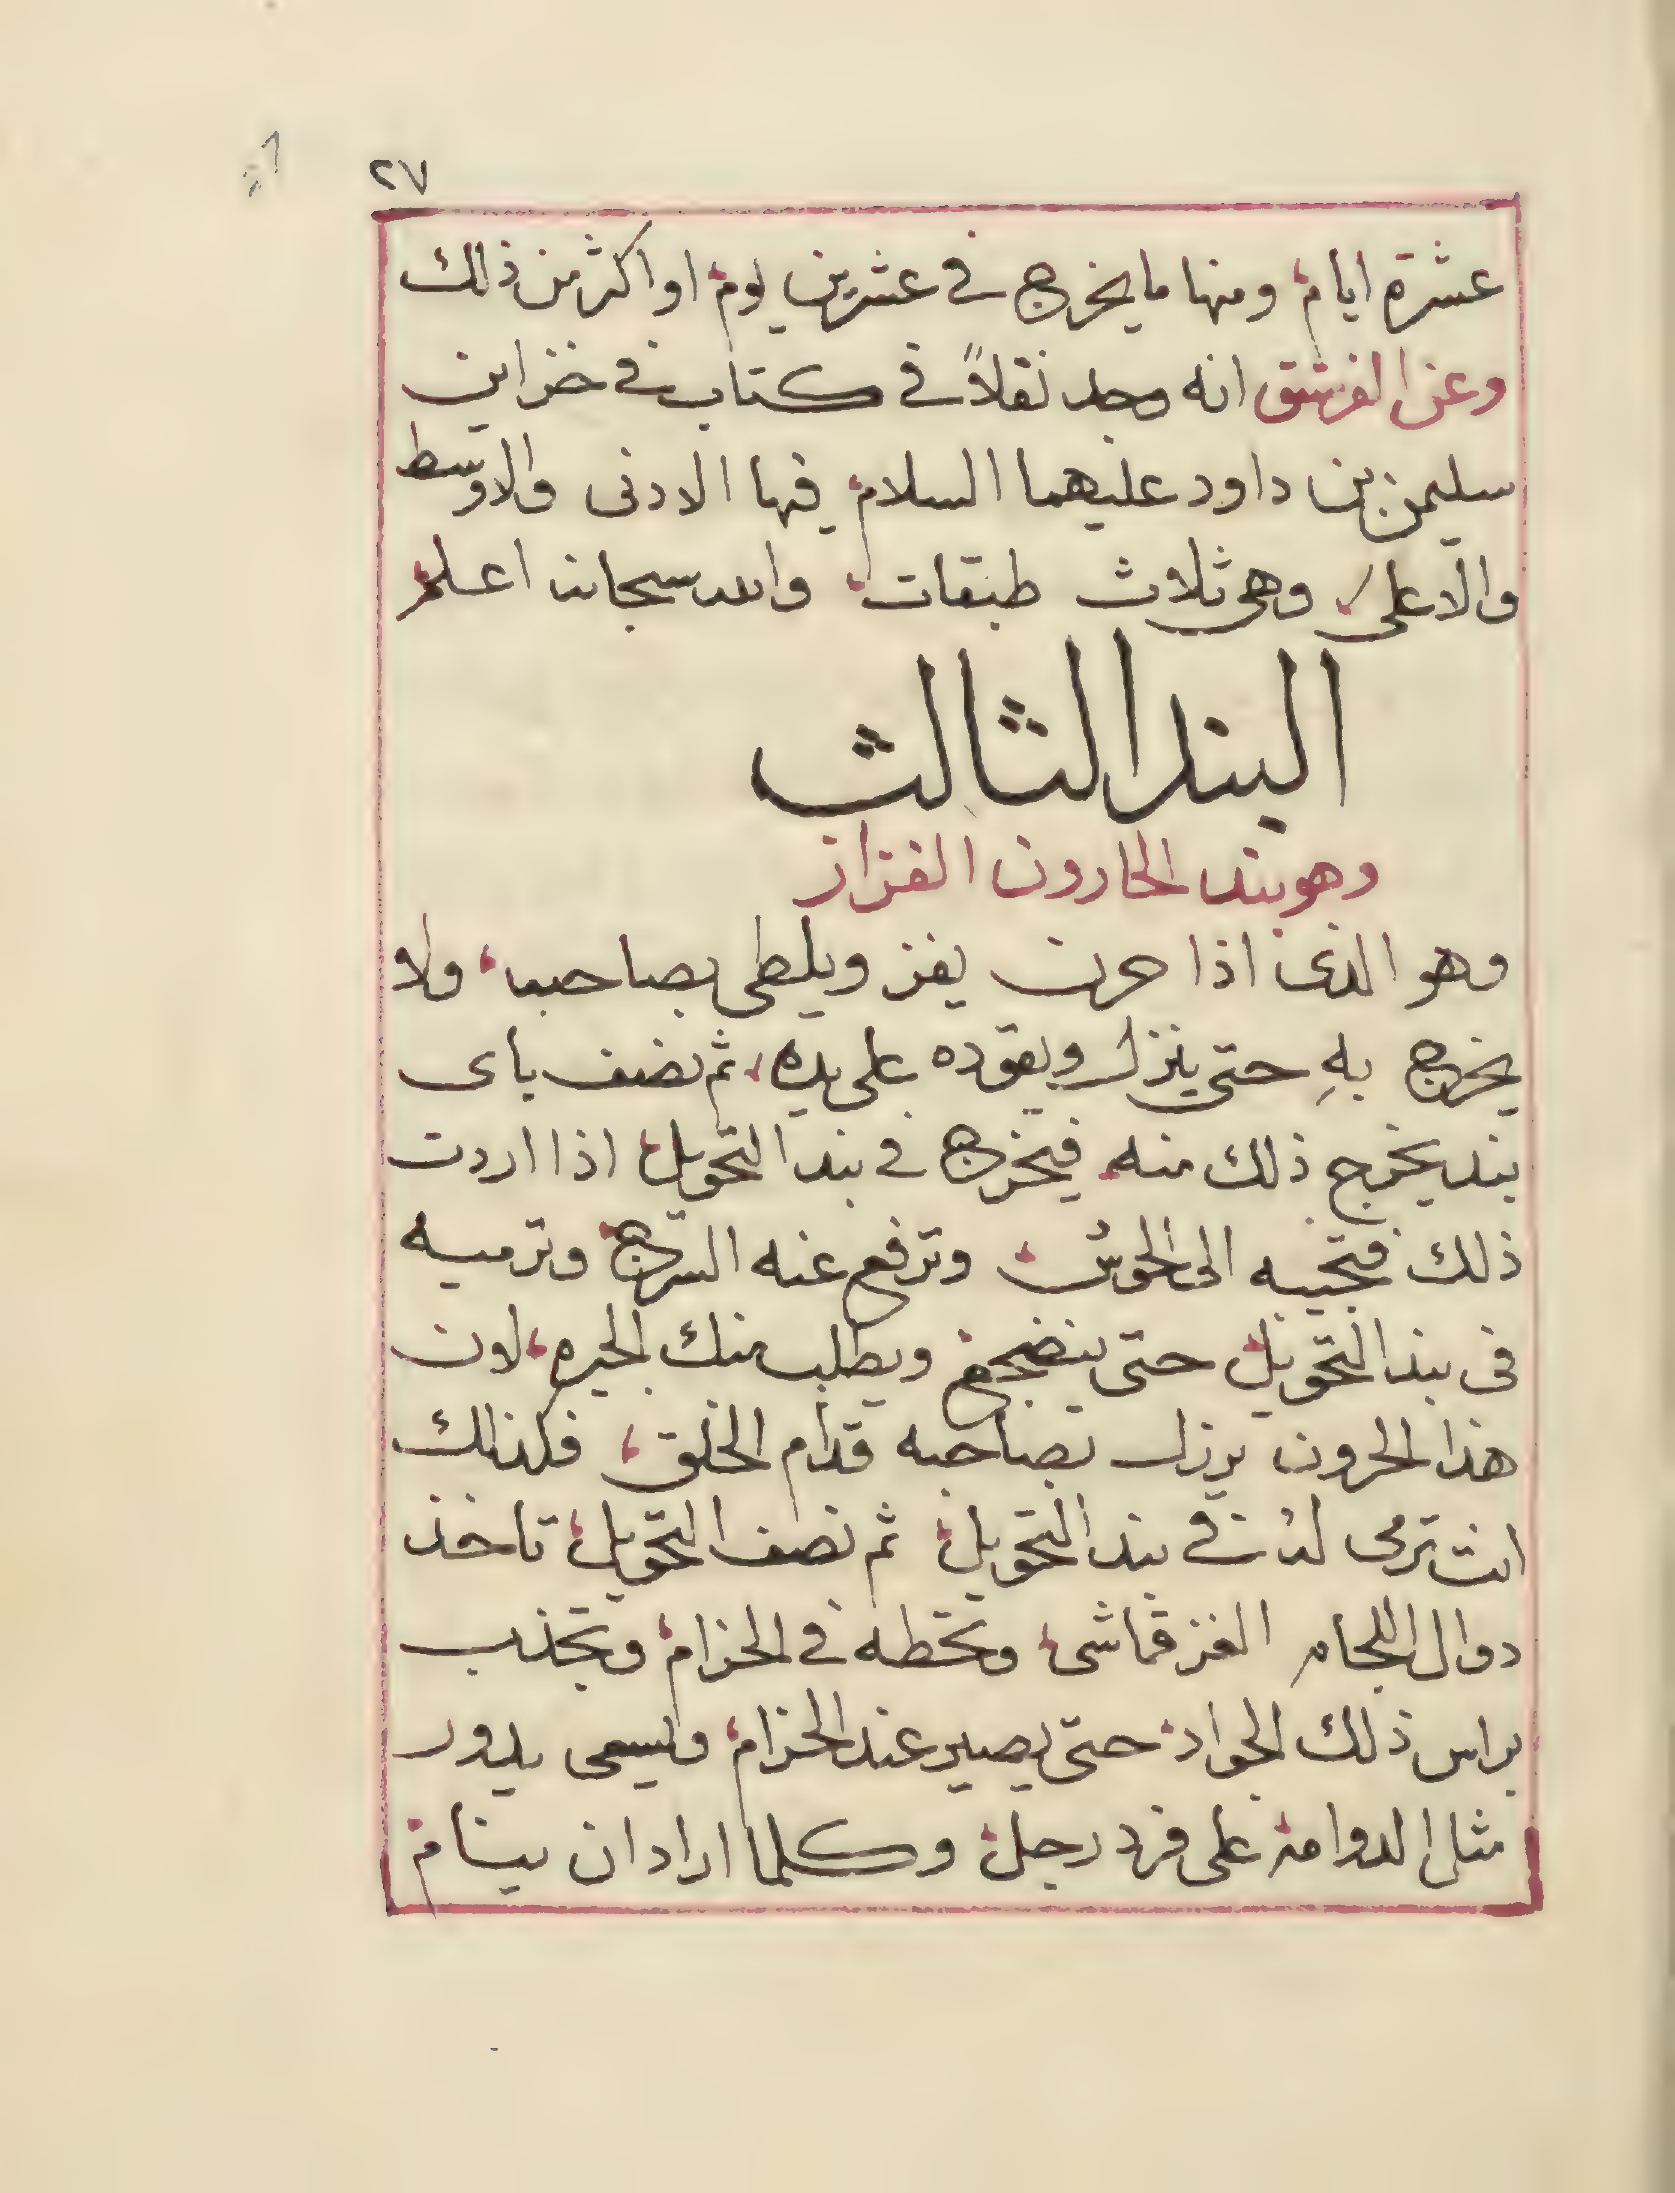 ٢٧
عشرة ايام، ومنها ما يخرج في عشرين يوم، او اكثر من ذلك
وعن القرشق انه وجد نقلاً في كتاب في خزاين
سليمن بن داود عليهما السلام، فيها الادنى والاوسط
والاعلى، وهي ثلاث طبقات، والله سبحانه اعلم
البند الثالث
وهو بند الحارون القزاز
وهو الذى اذا حرن يقز ويلطى بصاحبه، ولا
يخرج بهِ حتى ينزل ويقوده على يده، ثم نصف باى
بند يخرج ذلك منه، فيخرج في بند التحويل، اذا اردت
ذلك فتجيبه الى الحوش، وترفع عنه السرج، وترميه
فى بند التحويل، حتى ينضجع ويطلب منك الجيره، لان
هذا الحرون يرزل بصاحبه قدام الخلق، فكذلك
انت ترمى لهُ في بند التحويل، ثم نصف التحويل، تاخذ
دوال اللجام القزقماشى، وتحطه في الحزام، وتجذب
براس ذلك الجواد، حتى يصير عند الحزام، ويسمى يدور
مثل الدوامة، على فرد رجل، وكلما اراد ان ينام،